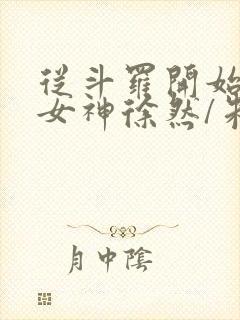 從斗羅開始
女神徐然/朱
月中陰